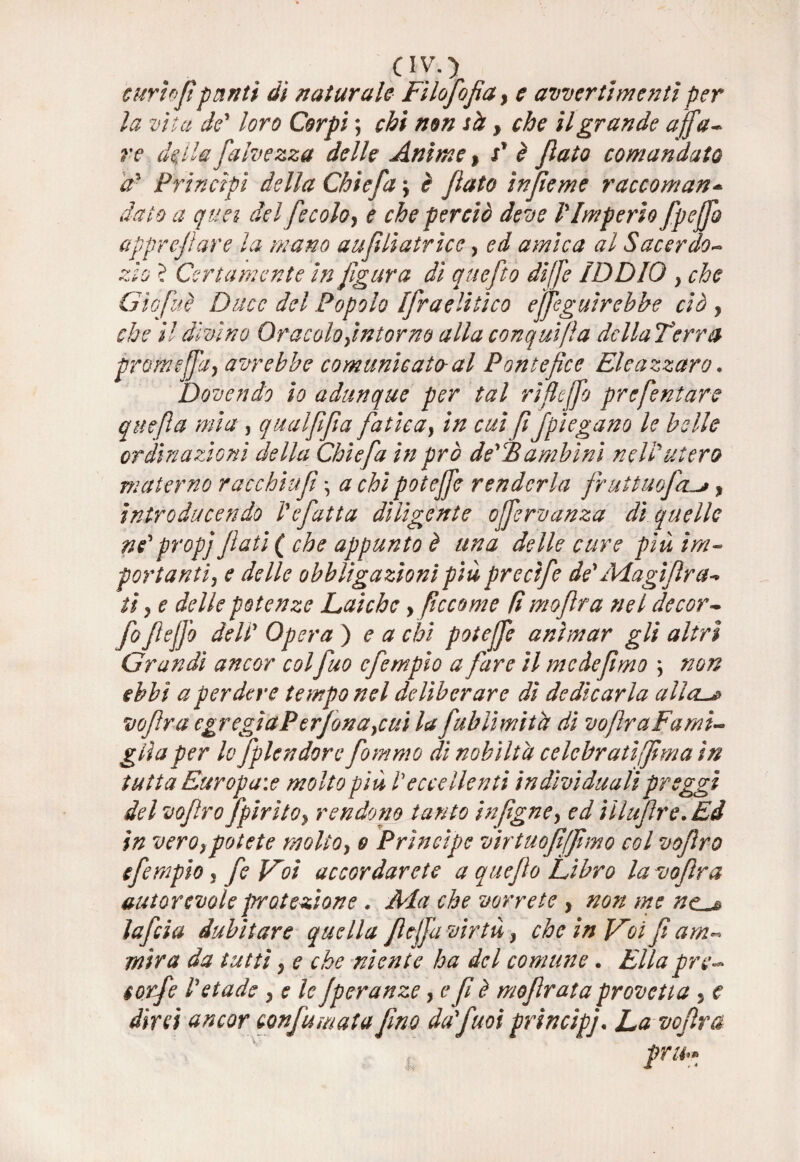 (IV.)
curiosi punti di naturale Filosofia, e avvertimenti per
la vita de' loro Corpi; chi non sà, che il grande affa-
re della salvezza delle Anime, s' è stato comandato
a' Principi della Chiesa; è stato insieme raccoman-
dato a quei del secolo, e che perciò deve l'Imperio spesso
apprestare la mano ausiliatrice, ed amica al Sacerdo-
zio? Certamente in figura di questo disse IDDIO, che
Giosuè Duce del Popolo Israelitico esseguirebbe ciò,
che il divino Oracolo,intorno alla conquista della Terra
promessa, avrebbe comunicato al Pontefice Eleazzaro.
Dovendo io adunque per tal riflesso presentare
questa mia, qualsisia fatica, in cui si spiegano le belle
ordinazioni della Chiesa in prò de' Bambini nell'utero
materno racchiusi; a chi potesse renderla fruttuosa,
introducendo l'esatta diligente osservanza di quelle
ne' propj stati ( che appunto è una delle cure più im-
portanti, e delle obbligazioni più precise de' Magistra-
ti, e delle potenze Laiche, siccome si mostra nel decor-
so stesso dell' Opera ) e a chi potesse animar gli altri
Grandi ancor col suo esempio a fare il medesimo; non
ebbi a perdere tempo nel deliberare di dedicarla alla
vostra egregia Persona,cui la sublimità di vostra Fami-
glia per lo splendore sommo di nobiltà celebratissima in
tutta Europa:e molto più l'eccellenti individuali preggi
del vostro spirito, rendono tanto insigne, ed illustre. Ed
in vero,potete molto, o Principe virtuosissimo col vostro
esempio, se Voi accordarete a questo Libro la vostra
autorevole protezione. Ma che vorrete, non me ne
lascia dubitare quella stessa virtù, che in Voi si am-
mira da tutti, e che niente ha del comune. Ella pre-
corse l'etade, e le speranze, e si è mostrata provetta, e
direi ancor consumata sino da' suoi principj. La vostra
pru-